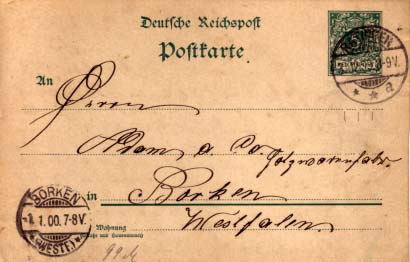 Deutsche Reichspost
Postkarte
5
An
Herrn
Adam & Co. Holzwarenfabr.
in Borken
Westfalen
Wohnung
BORKEN
1.00.7-8V.
(WESTF)